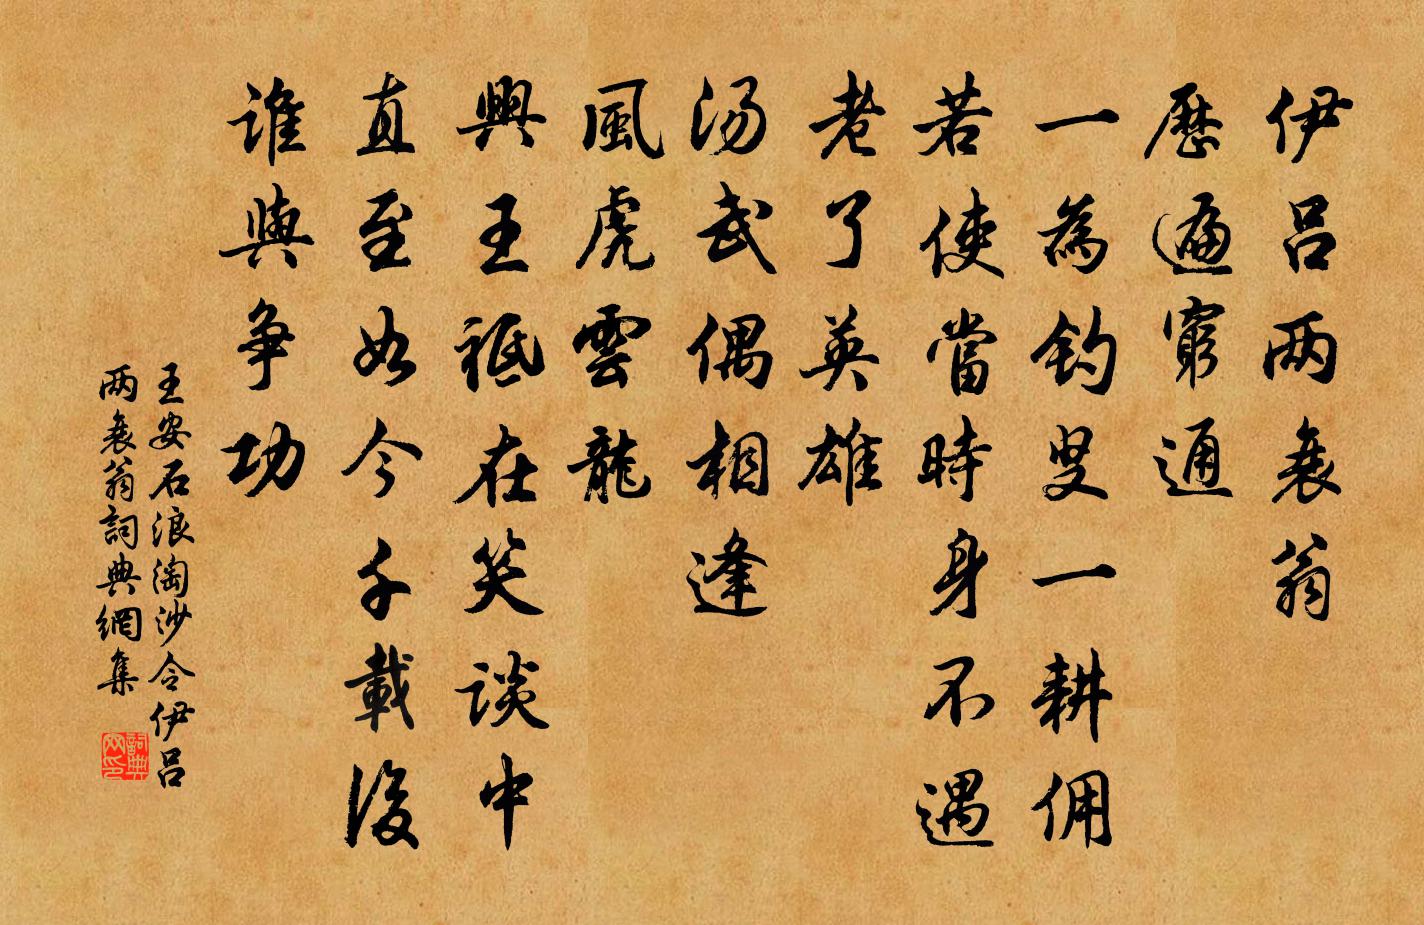 伊呂两衰翁
歷遍窮通
一為钓叟一耕佣
若使當時身不遇
老了英雄
汤武偶相逢
風虎雲龍
興王祗在笑談中
直至如今千載後
誰與争功
王安石浪淘沙令伊呂
两衰翁詞典網集
詞典
网印